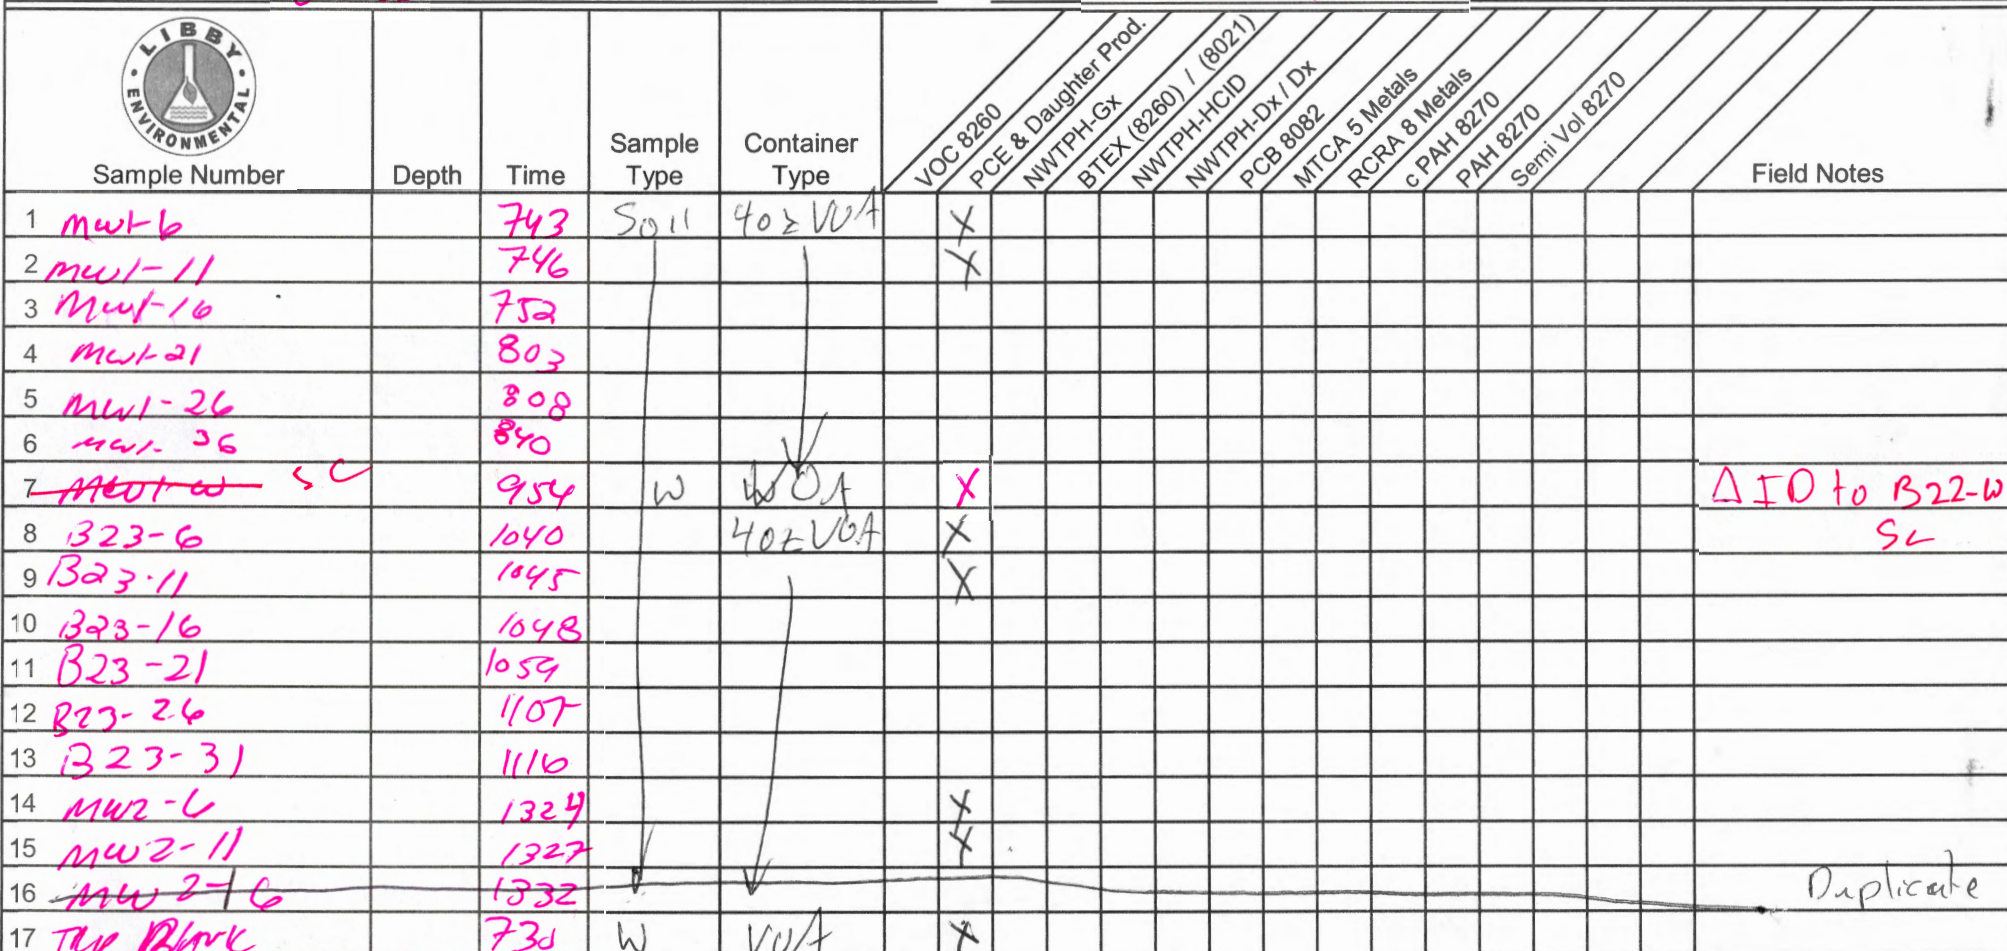 LIBBY ENVIRONMENTAL
Sample Number Depth Time Sample Type Container Type VOC 8260 PCE & Daughter Prod. NWTPH-Gx BTEX (8260) / (8021) NWTPH-HCID NWTPH-Dx / Dx PCB 8082 MTCA 5 Metals RCRA 8 Metals c PAH 8270 PAH 8270 Semi Vol 8270 Field Notes
1 MW1-6 743 Soil 4oz VOA X
2 MW1-11 746 X
3 MW1-16 752
4 MW1-21 803
5 MW1-26 808
6 MW1-36 840
7 MW1-W SC 954 W VOA X Δ ID to B22-W
8 B23-6 1040 4oz VOA X SC
9 B23-11 1045 X
10 B23-16 1048
11 B23-21 1059
12 B23-26 1107
13 B23-31 1116
14 MW2-6 1324 X
15 MW2-11 1327 X
16 MW2-16 1332 Duplicate
17 Trip Blank 730 W VOA X